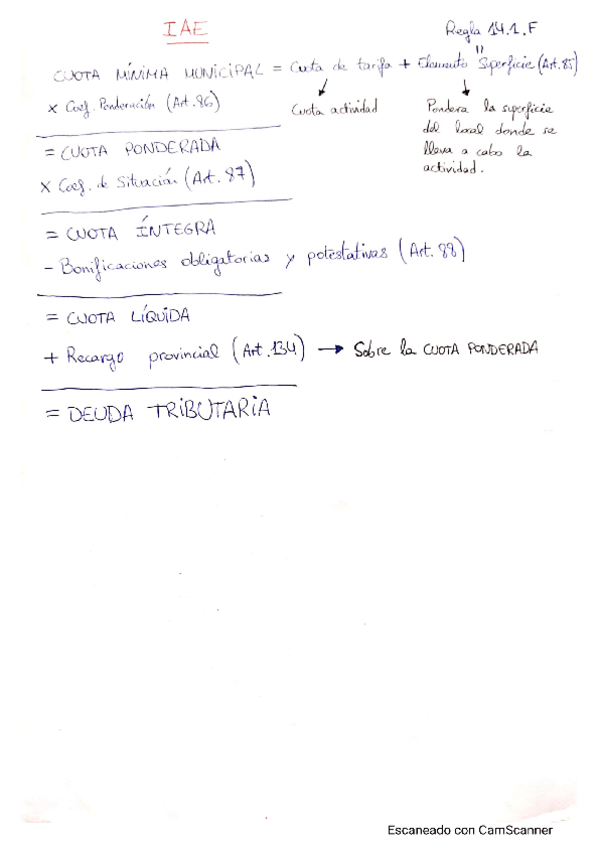 IAE
Regla 14.1.F
CUOTA MÍNIMA MUNICIPAL = Cuota de tarifa + Elemento Superficie (Art. 85)
x Coef. Ponderación (Art. 86)
Cuota actividad
Pondera la superficie
del local donde se
lleva a cabo la
actividad.
= CUOTA PONDERADA
x Coef. de Situación (Art. 87)
= CUOTA ÍNTEGRA
- Bonificaciones obligatorias y potestativas (Art. 88)
= CUOTA LÍQUIDA
+ Recargo provincial (Art. 134) → Sobre la CUOTA PONDERADA
= DEUDA TRIBUTARIA
Escaneado con CamScanner